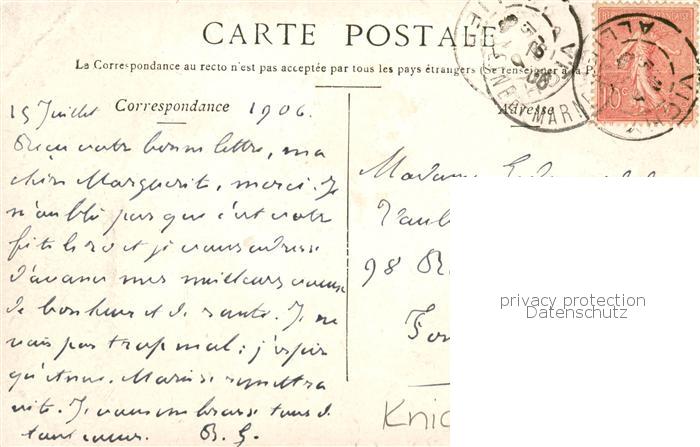 CARTE POSTALE
La Correspondance au recto n'est pas acceptée par tous les pays étrangers (Se renseigner à la P
Correspondance
Adresse
15 Juillet 1906.
Reçu votre bonne lettre, ma
chère Marguerite, merci. Je
n'oublie pas que c'est votre
fête le 20 et je vous adresse
d'avance mes meilleurs vœux
de bonheur et de santé. Je ne
vais pas trop mal; j'espère
qu'
vite. Je vous embrasse tous de
tout cœur. B. G.
Madame
98
MARN
10c
privacy protection
Datenschutz
Knic